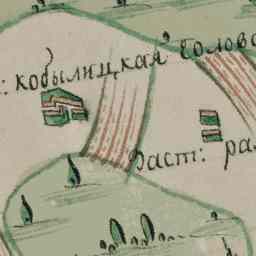 : кобылицкая Голов
Раст: ра